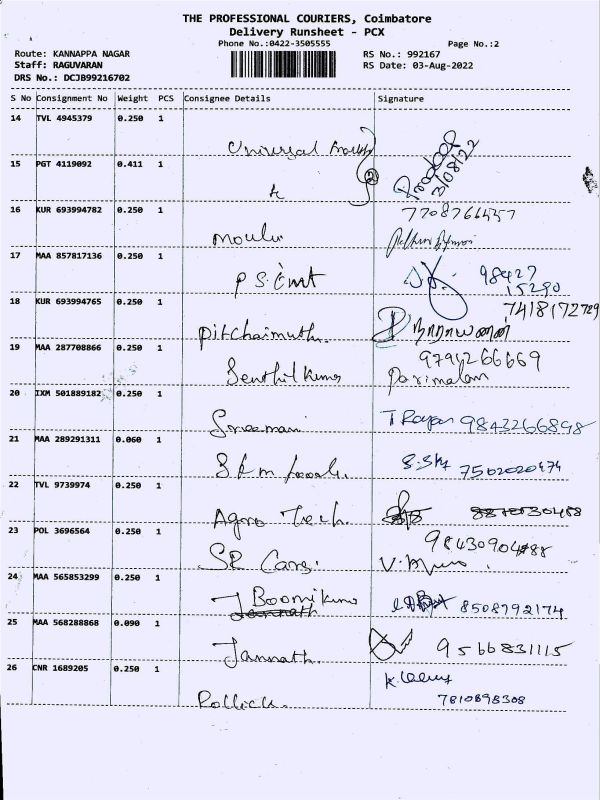 THE PROFESSIONAL COURIERS, Coimbatore
Delivery Runsheet - PCX
Phone No.:0422-3505555
Page No.:2
Route: KANNAPPA NAGAR
RS No.: 992167
Staff: RAGUVARAN
RS Date: 03-Aug-2022
DRS No.: DCJB99216702
S No Consignment No Weight PCS Consignee Details Signature
14 TVL 4945379 0.250 1
Universal
15 PGT 4119092 0.411 1
Pradeep
3/08/22
16 KUR 693994782 0.250 1
7708766457
Mouli
17 MAA 857817136 0.250 1
P S
98427
15290
18 KUR 693994765 0.250 1
7418172729
Pitchaimuthu
நாராயணன்
19 MAA 287708866 0.250 1
9794266669
Senthil Kumar
Parimalam
20 IXM 501889182 0.250 1
Sreemani
9843266898
21 MAA 289291311 0.060 1
S K M
7502020474
22 TVL 9739974 0.250 1
Agro Tech
23 POL 3696564 0.250 1
SR Cars.
24 MAA 565853299 0.250 1
Boomikumar
8508792174
25 MAA 568288868 0.090 1
Jannath
9566831115
26 CNR 1689205 0.250 1
Rollick
7810898308